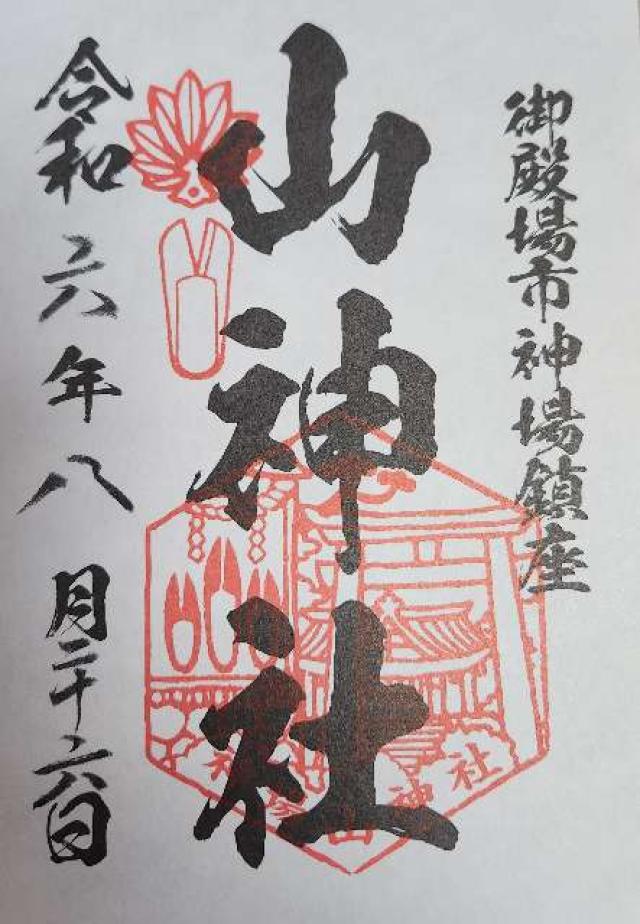 御殿場市神場鎮座
山神社
令和六年八月二十六日
山神社